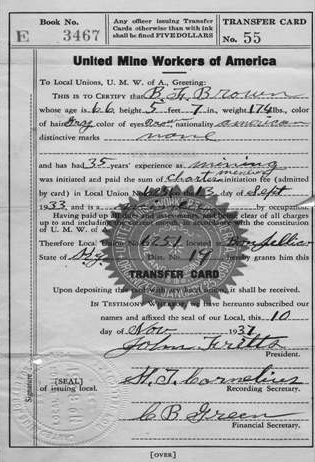 Book No.
E 3467
Any officer issuing Transfer
Cards otherwise than with ink
shall be fined FIVE DOLLARS
TRANSFER CARD
No. 55
United Mine Workers of America
To Local Unions, U. M. W. of A., Greeting:
This is to Certify that B. F. Brown
whose age is 66, height 5 feet 7 in., weight 174 lbs., color
of hair Gray color of eyes nationality american
distinctive marks none
and has had 35 years' experience as mining
was initiated and paid the sum of charter member initiation fee (admitted by
card) in Local Union No. 6251 13 day of Sept
1933 and is a by occupation.
Having paid all dues and assessments, and being clear of all charges
up to and including accordance with the constitution
of U. M. W. of A.
Therefore Local Union No. 6251 located at
State of Ky. Dist. No. 19 hereby grants him this
TRANSFER CARD
Upon depositing this card with any local union, it shall be received.
In Testimony Whereof, we have hereunto subscribed our
names and affixed the seal of our Local, this 10
day of Nov 1937
John Fritts
President.
[SEAL]
of issuing local.
H. T. Cornelius
Recording Secretary.
C B Green
Financial Secretary.
Signature
[OVER]